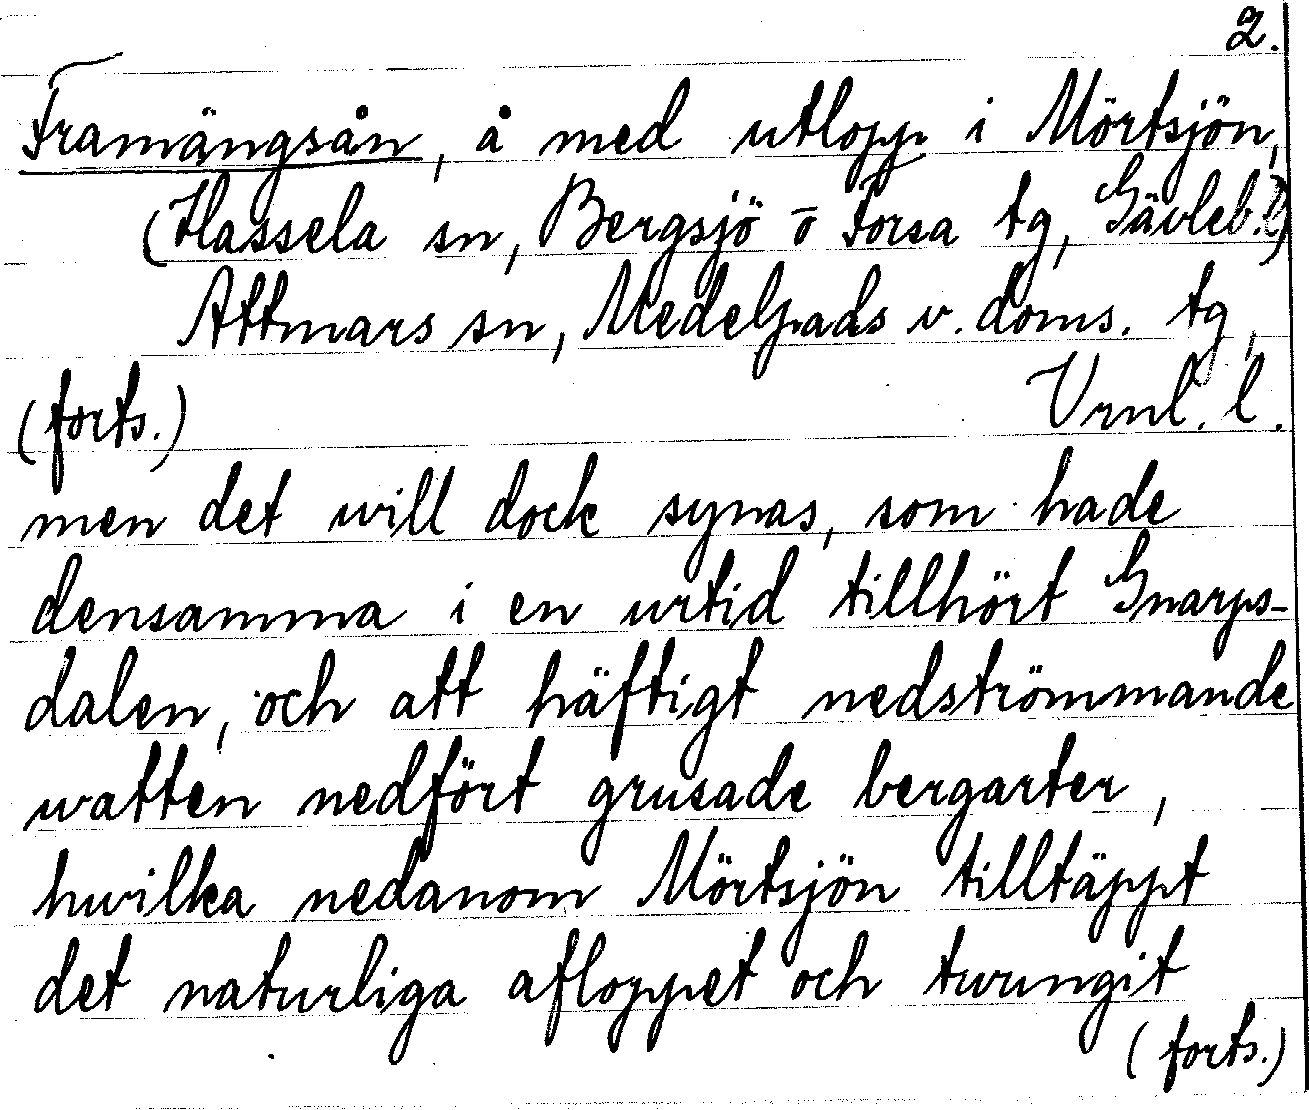 2.
Framängsån, å med utlopp i Mörtsjön,
(Hassela sn, Bergsjö o Forsa tg, Gävleb. l)
Attmars sn, Medelpads v. doms. tg,
(forts.) Vrnl. l.
men det will dock synas, som hade
densamma i en urtid tillhört Gnarps-
dalen, och att häftigt nedströmmande
watten nedfört grusade bergarter,
hwilka nedanom Mörtsjön tilltäppt
det naturliga afloppet och twungit
(forts.)